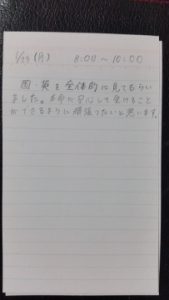 1/29(月) 8:00～10:00
国・英を全体的に見てもらい
ました。本命に安心して受けること
ができるように頑張りたいと思います。